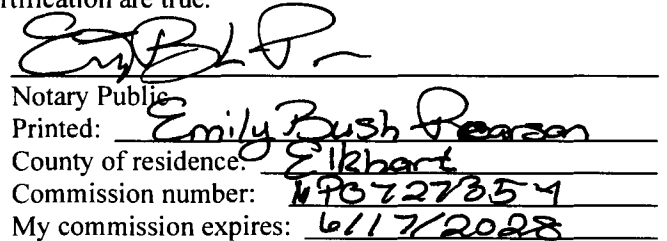 rtification are true.
Notary Public
Printed: Emily Bush Pearson
County of residence: Elkhart
Commission number: NP0727354
My commission expires: 6/17/2028